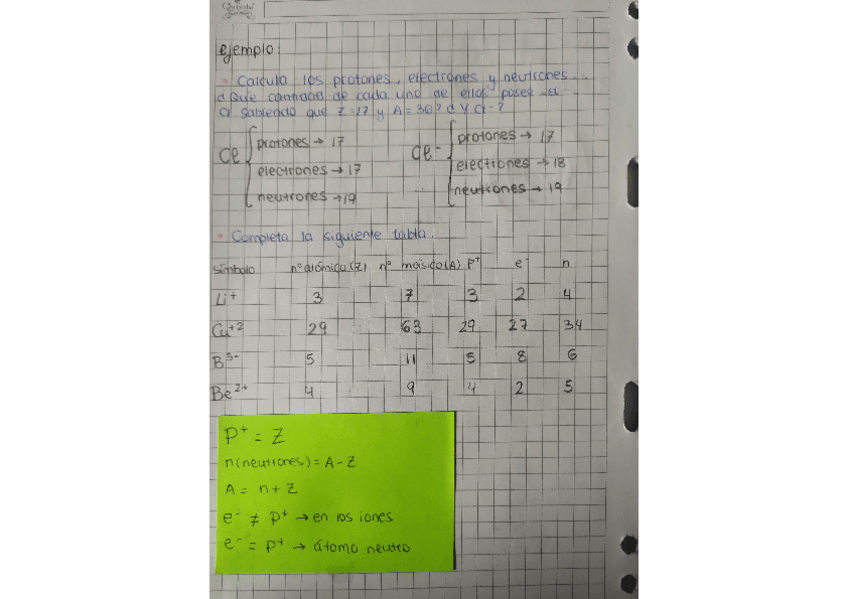 ejemplo:
• Calcula los protones, electrones y neutrones...
¿Que cantidad de cada uno de ellos posee el
Cl sabiendo que Z=17 y A=36? ¿Y Cl-?
Cl protones → 17
electrones → 17
neutrones → 19
Cl- protones → 17
electrones → 18
neutrones → 19
• Completa la siguiente tabla.
símbolo nº atómico(Z) nº másico(A) P+ e- n
Li+ 3 7 3 2 4
Cu+2 29 63 29 27 34
B3- 5 11 5 8 6
Be2+ 4 9 4 2 5
P+ = Z
n(neutrones) = A-Z
A = n+Z
e- ≠ P+ → en los iones
e- = P+ → átomo neutro